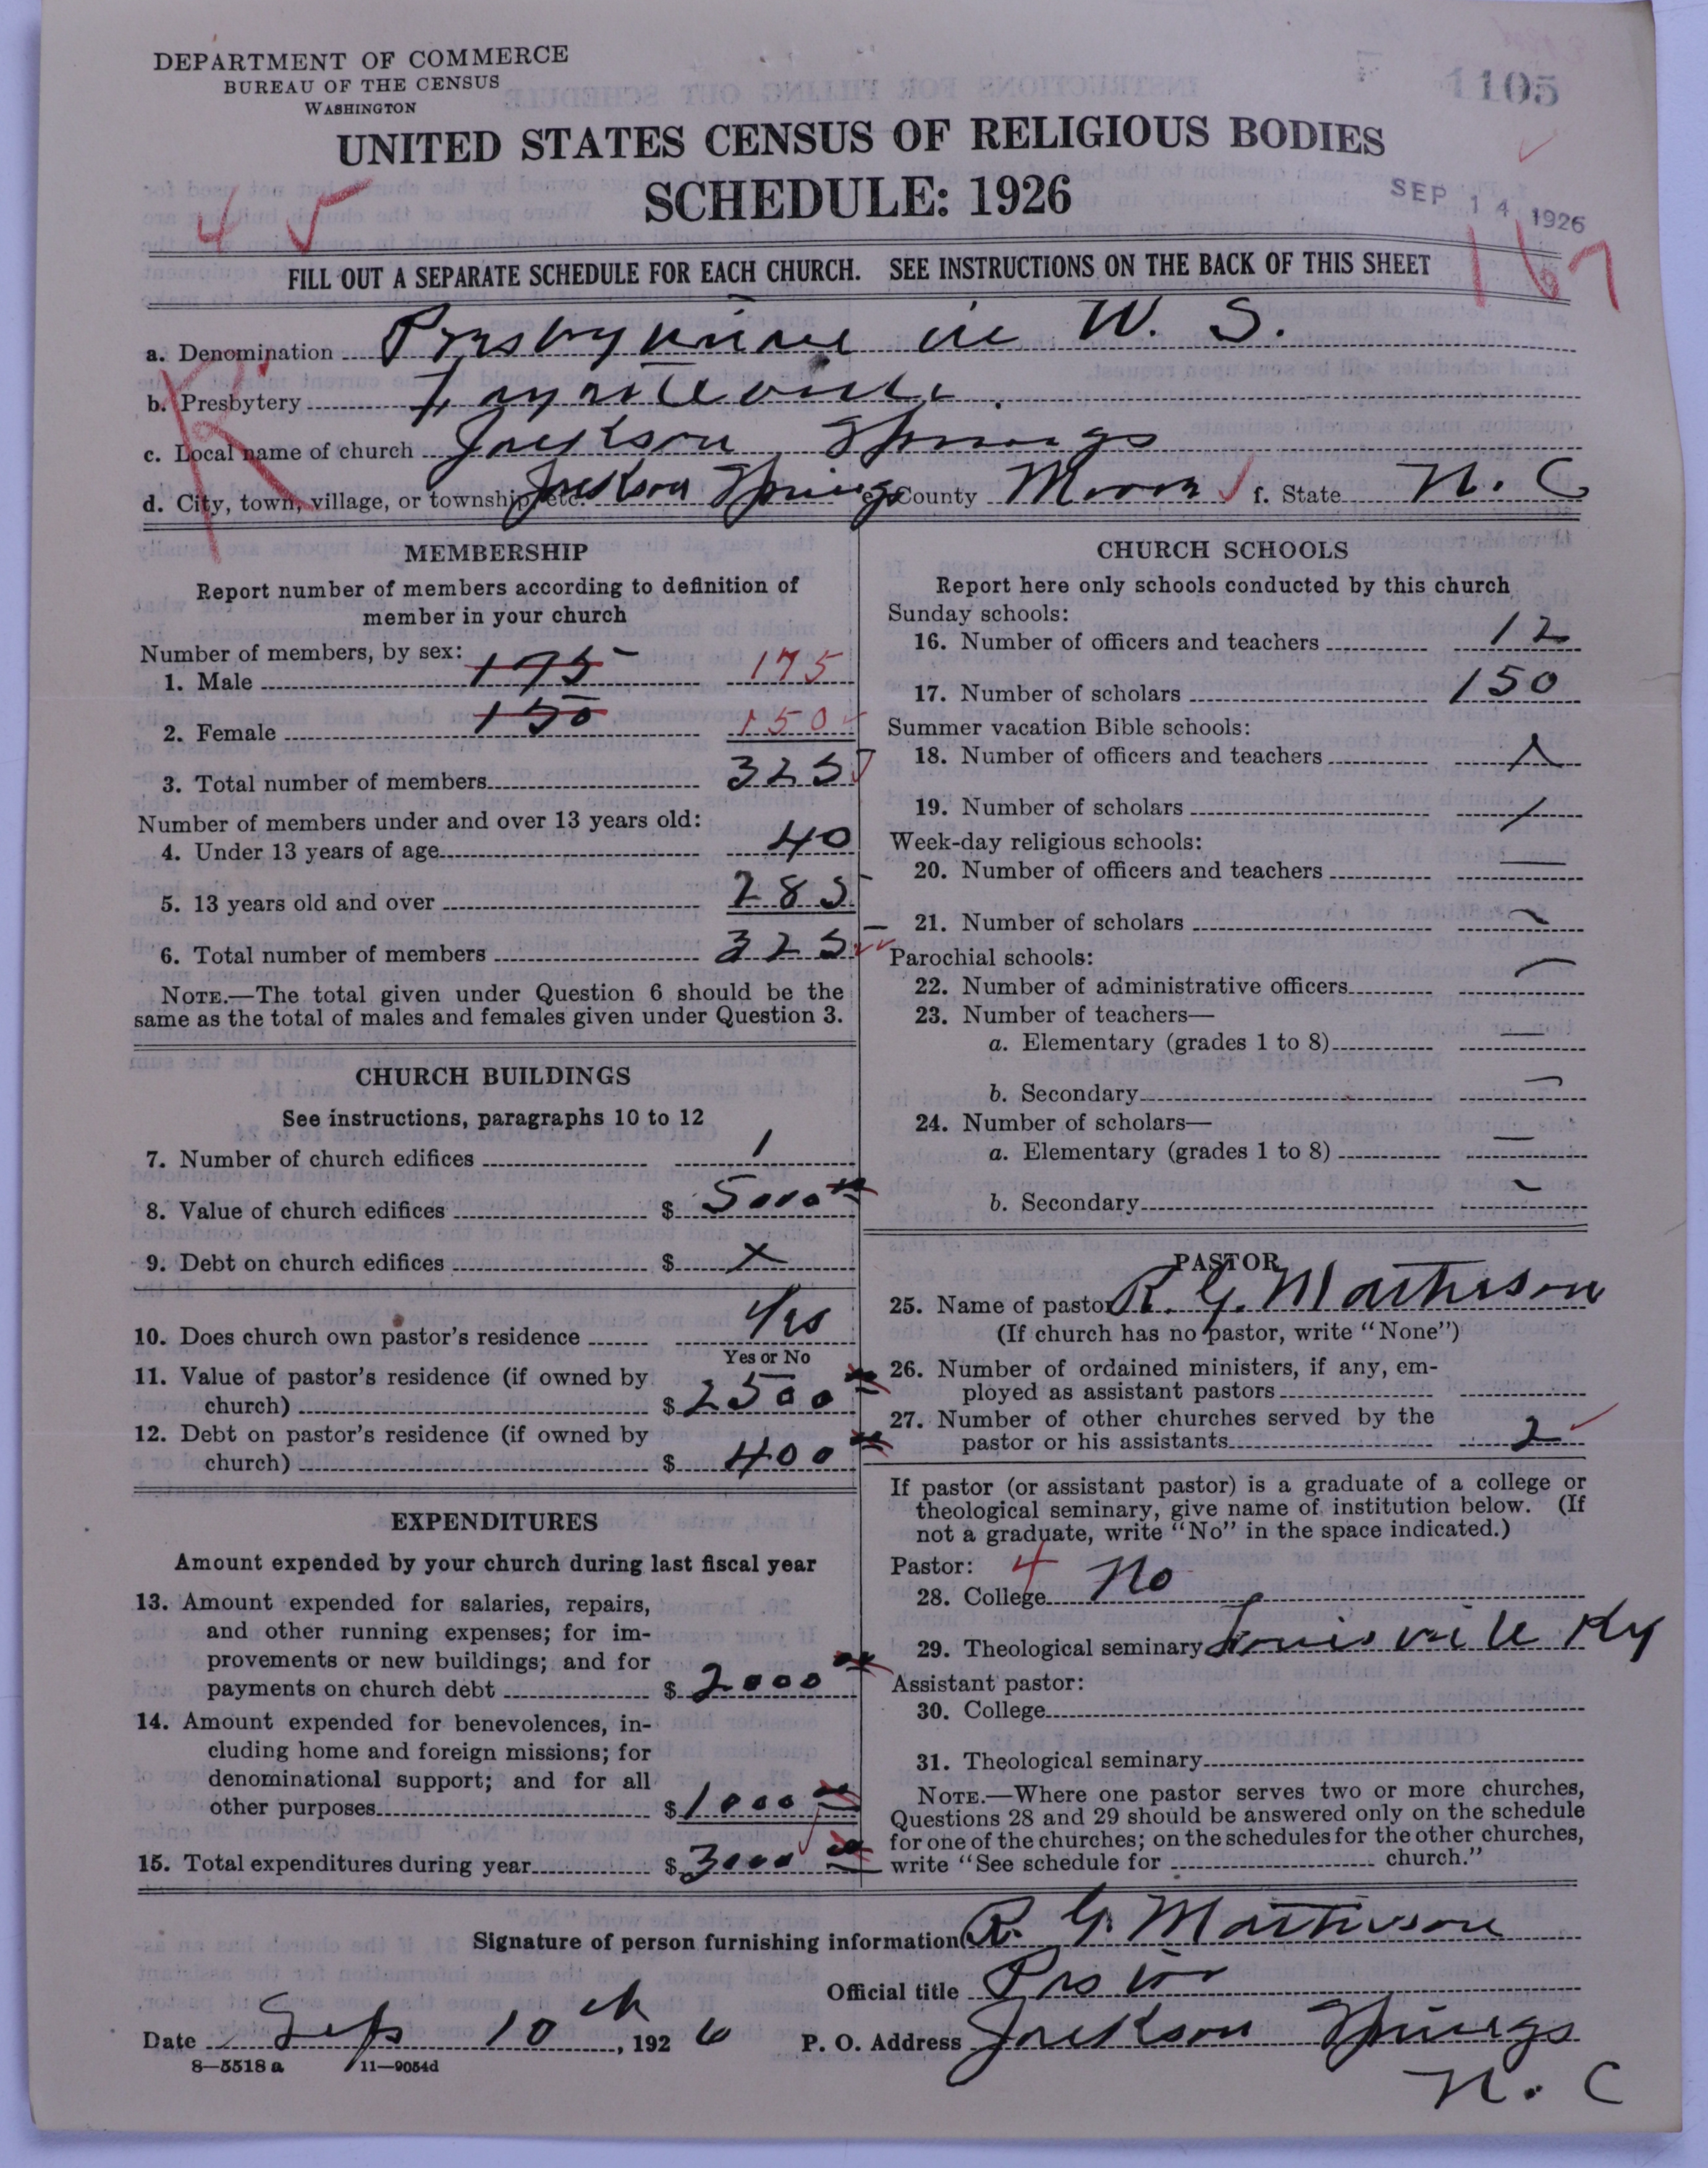 DEPARTMENT OF COMMERCE
BUREAU OF THE CENSUS
WASHINGTON
1105
UNITED STATES CENSUS OF RELIGIOUS BODIES
SCHEDULE: 1926
SEP 14 1926
4 5
167
FILL OUT A SEPARATE SCHEDULE FOR EACH CHURCH. SEE INSTRUCTIONS ON THE BACK OF THIS SHEET
a. Denomination Presbyterian in U. S.
b. Presbytery Fayetteville.
c. Local name of church Jackson Springs
d. City, town, village, or township, etc. Jackson Springs e. County Moore f. State N. C
R
MEMBERSHIP
Report number of members according to definition of
member in your church
Number of members, by sex:
1. Male 175 175
2. Female 150 150
3. Total number of members 325
Number of members under and over 13 years old:
4. Under 13 years of age 40
5. 13 years old and over 285
6. Total number of members 325
NOTE.—The total given under Question 6 should be the
same as the total of males and females given under Question 3.
CHURCH BUILDINGS
See instructions, paragraphs 10 to 12
7. Number of church edifices 1
8. Value of church edifices $ 5000
9. Debt on church edifices $ x
10. Does church own pastor's residence Yes
Yes or No
11. Value of pastor's residence (if owned by
church) $ 2500
12. Debt on pastor's residence (if owned by
church) $ 400
EXPENDITURES
Amount expended by your church during last fiscal year
13. Amount expended for salaries, repairs,
and other running expenses; for im-
provements or new buildings; and for
payments on church debt $ 2000
14. Amount expended for benevolences, in-
cluding home and foreign missions; for
denominational support; and for all
other purposes $ 1000
15. Total expenditures during year $ 3000
CHURCH SCHOOLS
Report here only schools conducted by this church
Sunday schools:
16. Number of officers and teachers 12
17. Number of scholars 150
Summer vacation Bible schools:
18. Number of officers and teachers
19. Number of scholars
Week-day religious schools:
20. Number of officers and teachers —
21. Number of scholars —
Parochial schools:
22. Number of administrative officers —
23. Number of teachers—
a. Elementary (grades 1 to 8) —
b. Secondary —
24. Number of scholars—
a. Elementary (grades 1 to 8) —
b. Secondary —
PASTOR
25. Name of pastor R. G. Matheson
(If church has no pastor, write "None")
26. Number of ordained ministers, if any, em-
ployed as assistant pastors
27. Number of other churches served by the
pastor or his assistants 2
If pastor (or assistant pastor) is a graduate of a college or
theological seminary, give name of institution below. (If
not a graduate, write "No" in the space indicated.)
Pastor: 4
28. College No
29. Theological seminary Louisville Ky
Assistant pastor:
30. College
31. Theological seminary
NOTE.—Where one pastor serves two or more churches,
Questions 28 and 29 should be answered only on the schedule
for one of the churches; on the schedules for the other churches,
write "See schedule for church."
Signature of person furnishing information R. G. Matheson
Official title Pastor
Date Sep 10th, 1926 P. O. Address Jackson Springs
N. C
8—5518a 11—9054d